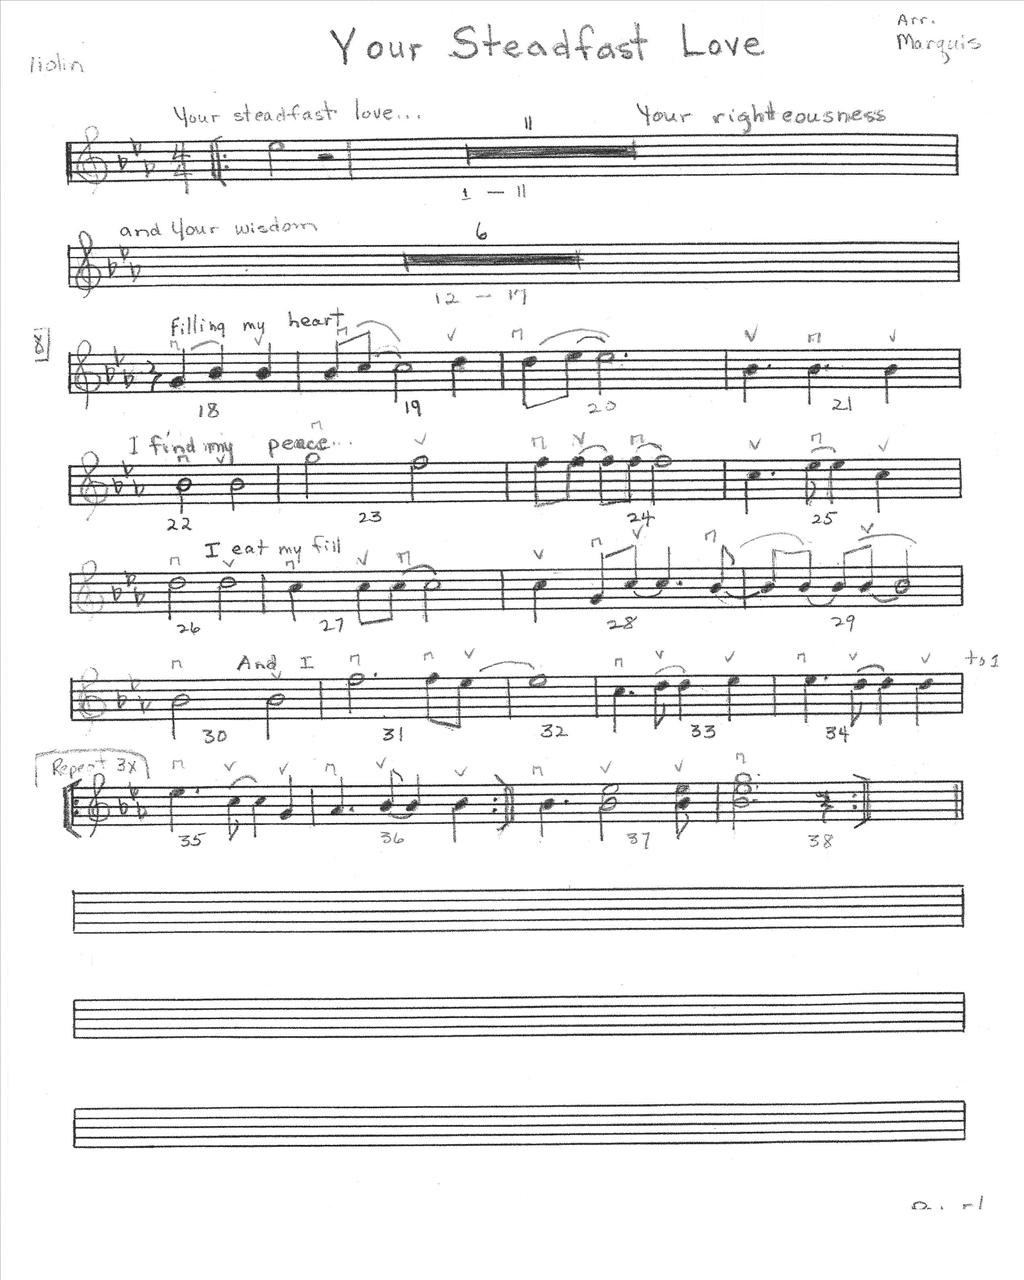 Your Steadfast Love
Arr.
Marquis
Violin
Your steadfast love...
11
Your righteousness
4
4
1 — 11
and Your wisdom
6
12 — 17
18
filling my heart
18 19 20 21
I find my peace...
22 23 24 25
I eat my fill
26 27 28 29
And I
to 1
30 31 32 33 34
Repeat 3x
35 36 37 38